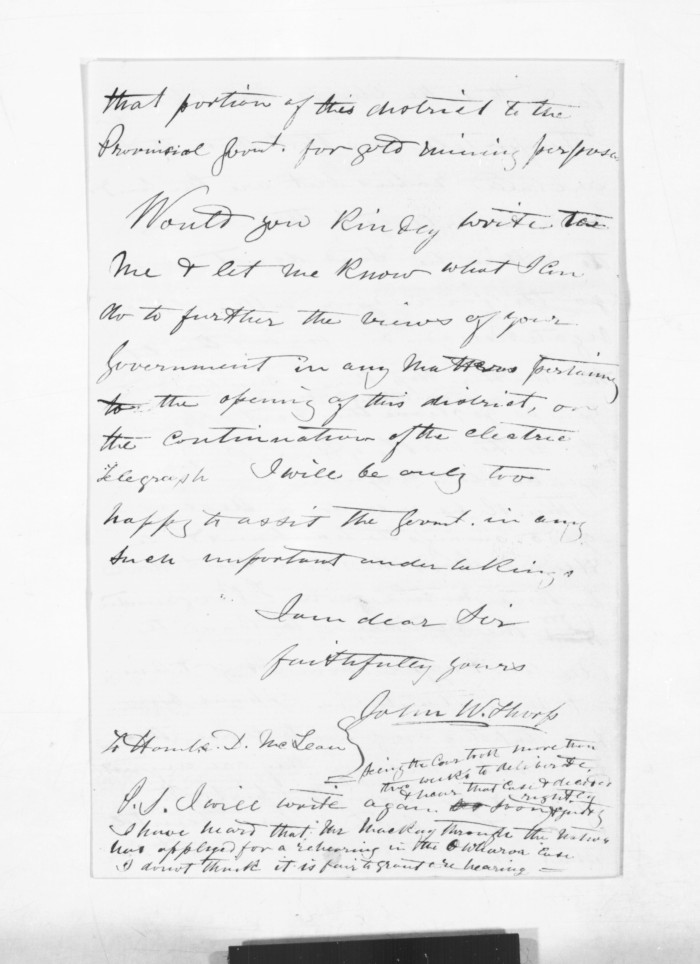 that portion of this district to the
Provincial Govnt. for gold mining purposes
Would you kindly write to
me & let me know what I can
do to further the views of your
Government in any matters pertaining
to the opening of this district, or
the continuation of the electric
Telegraph I will be only too
happy to assist the Govnt. in any
such important undertakings
I am dear Sir
faithfully yours
John W. Thorp
To Honble. D. McLean
being the Court took more than
two weeks to deliberate
& hear that case & decided
rightly
P.S. I will write again
I have heard that Mr Mackay through the Natives
has applyed for a rehearing in the Owharoa Case
I do not think it is fair to grant a re hearing —